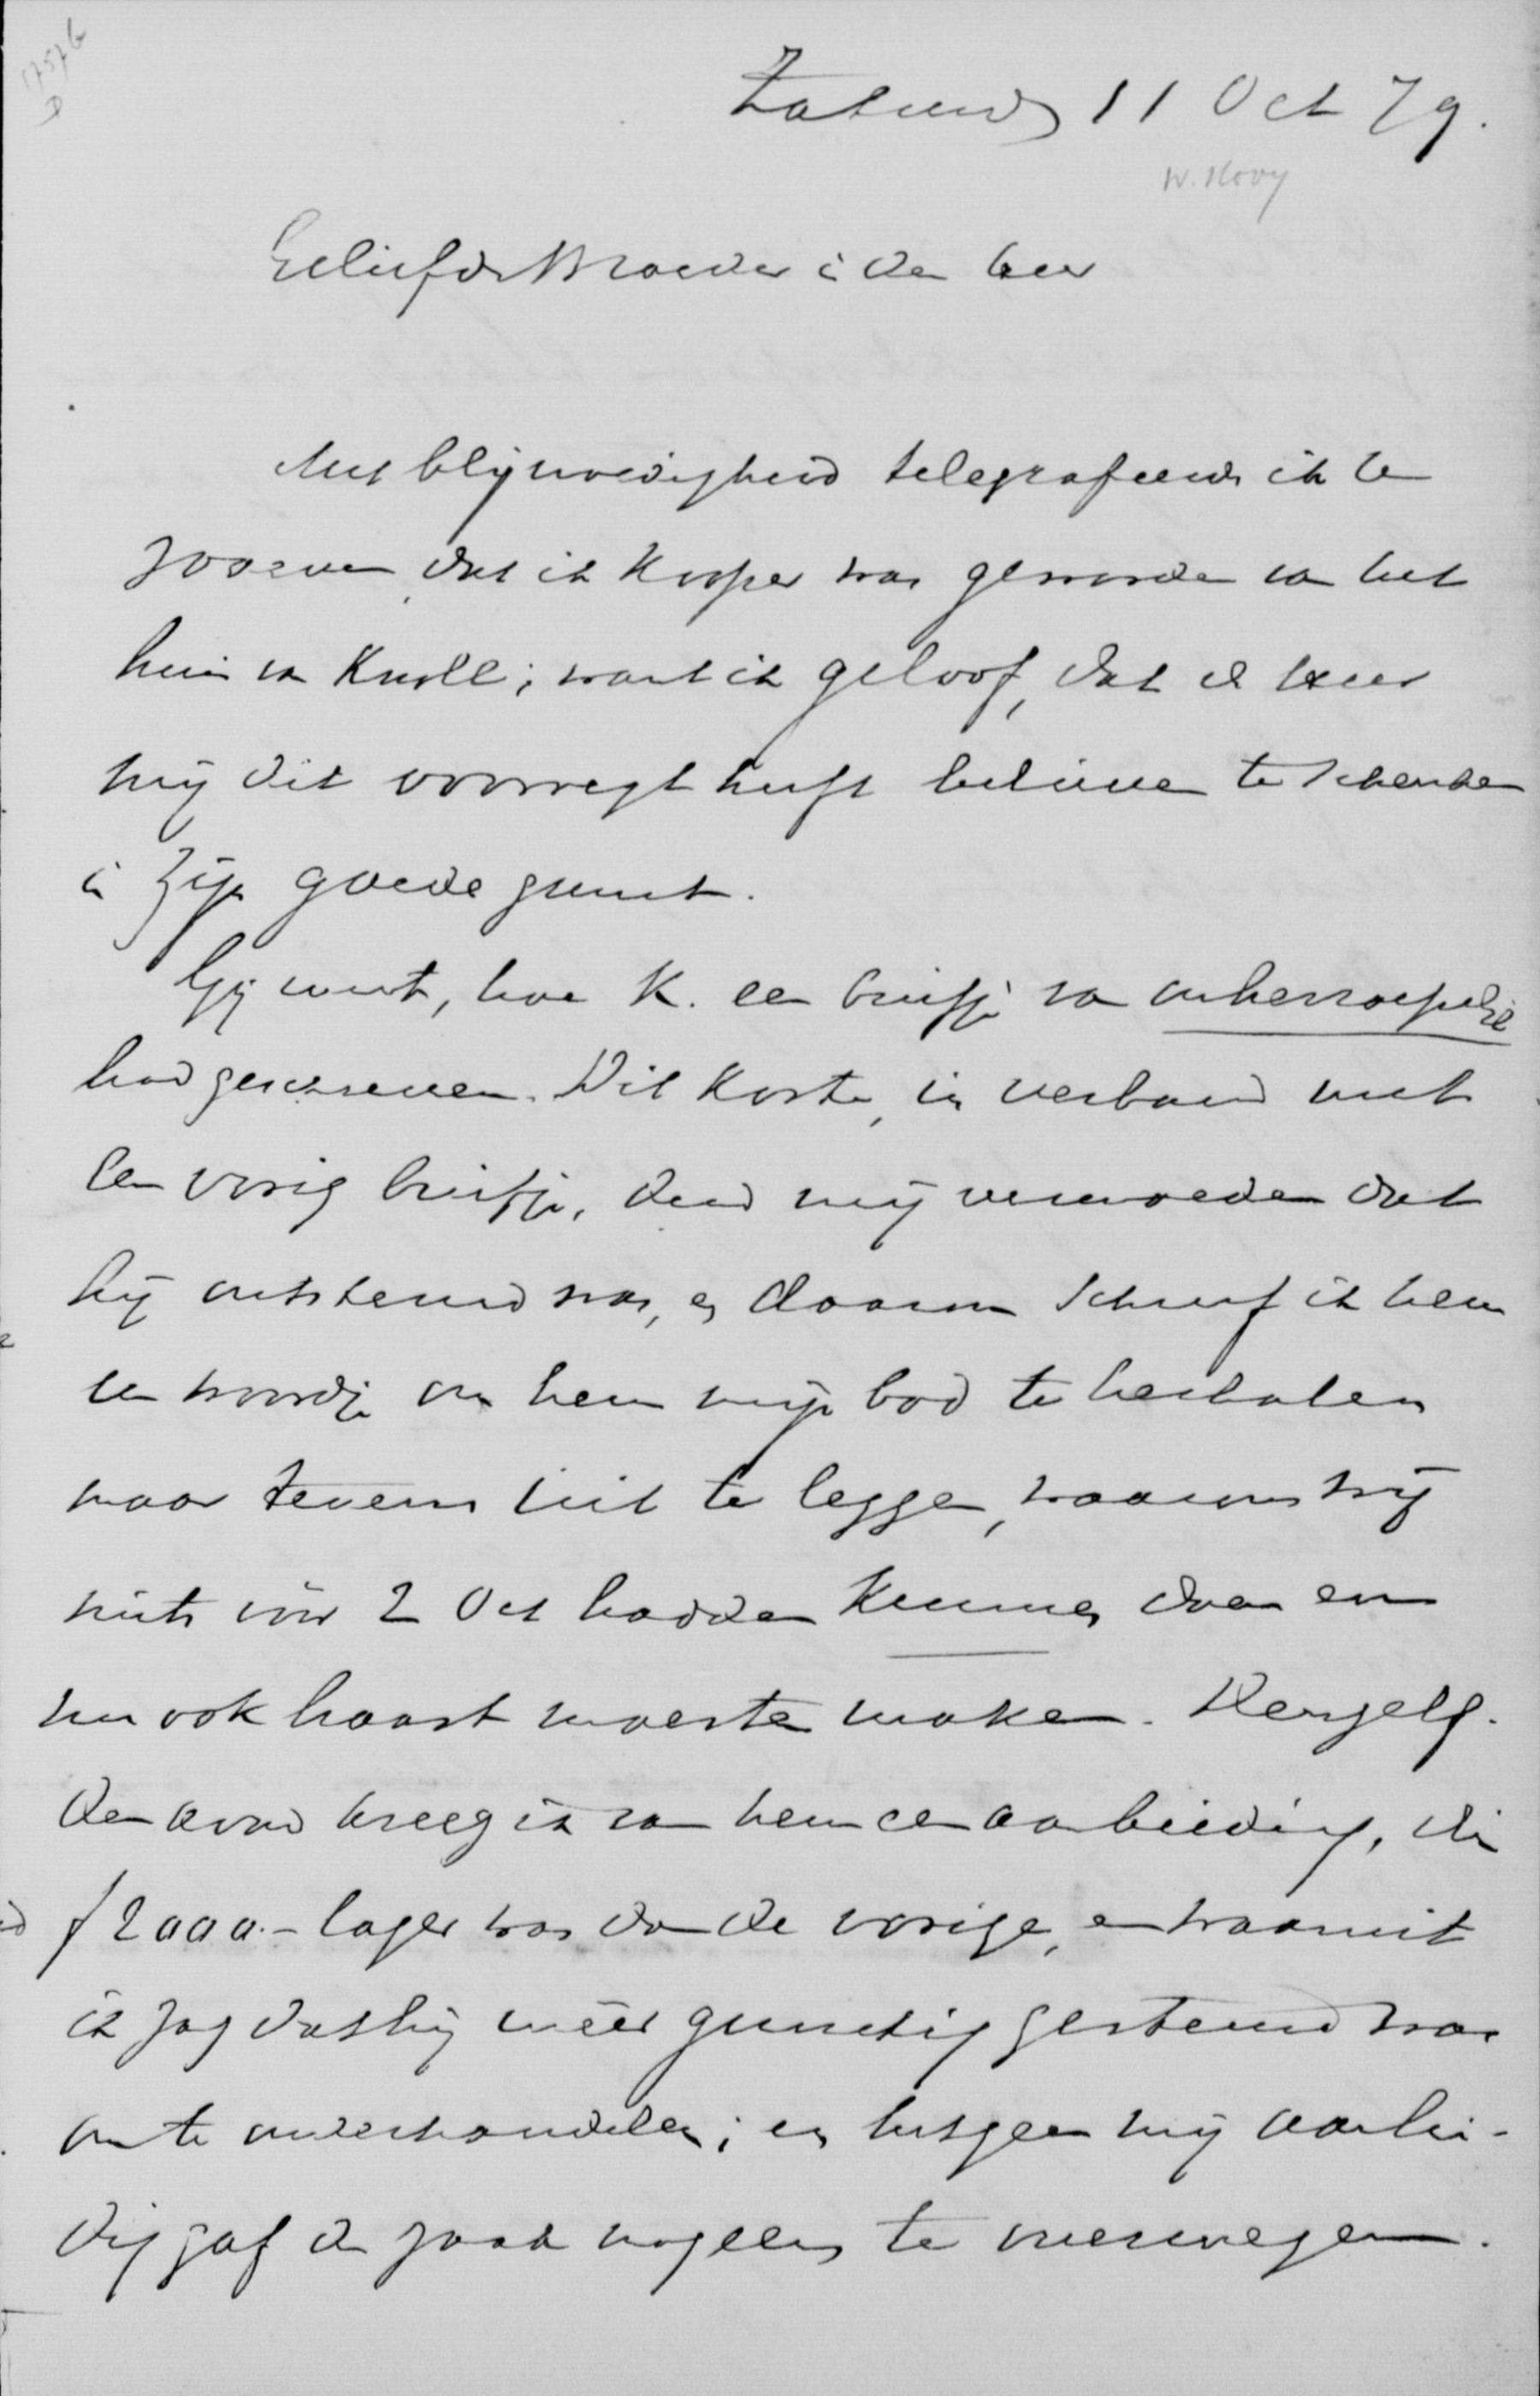 Zaturd 11 Oct 79.
W. Hovy
Geliefde Broeder i den Heer
Met blijmoedigheid telegrafeerde ik U
zooeven dat ik kooper was geworden van het
huis van Knoll; want ik geloof, dat de Heer
mij dit voorregt heeft believen te schenken
in zijn goede gunst.
Gij weet, hoe K. een briefje van onherroepelijk
had geschreven. Dit korte, in verband met
een vorig briefje, deed mij vermoeden dat
hij ontstemd was, en daarom schreef ik hem
een woordje om hem mijn bod te herhalen
maar tevens uit te leggen, waarom wij
niets vóór 2 Oct hadden kunnen doen en
nu ook haast moesten maken. Dergelf.
den avond kreeg ik van hem een aanbieding, die
f 2000.- lager was dan de vorige, en waaruit
ik zag dat hij méér gunstig gestemd was
om te onderhandelen; en hetgeen mij aanlei-
ding gaf de zaak nog eens te overwegen.